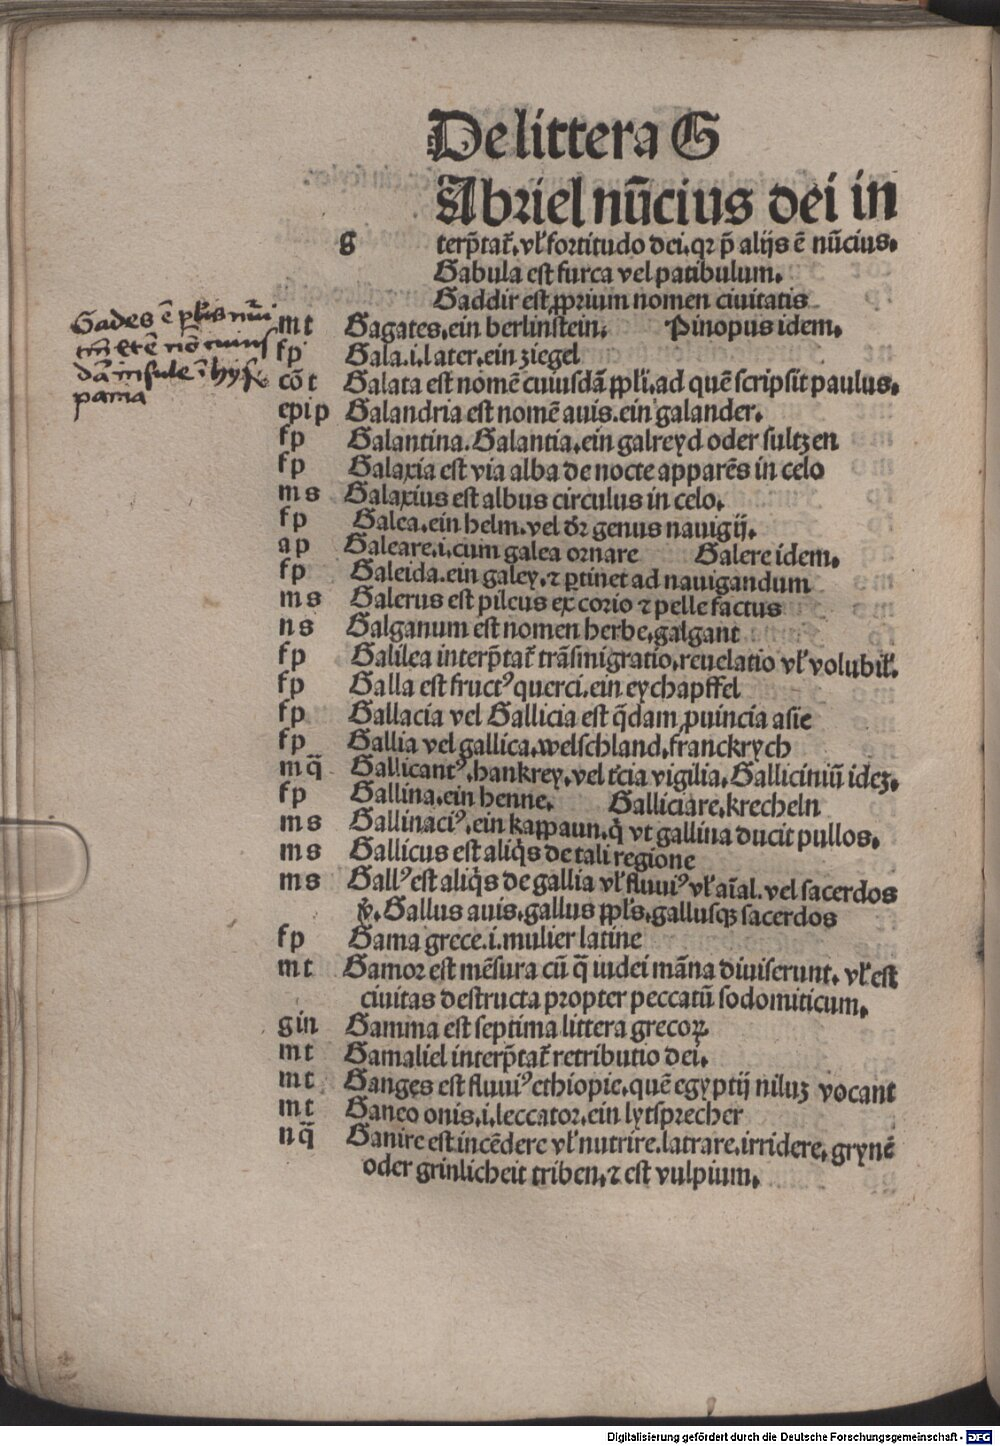 De littera G
Abriel nũcius dei in
g terp̃tat᷑. vl᷑ fortitudo dei. qꝛ p̃ alijs ẽ nũcius.
Gabula est furca vel patibulum.
Gaddir est ꝓprium nomen ciuitatis
Gades ẽ pl᷑is nũi
m t Gagates. ein berlinstein. Pinopus idem.
f p Gala .i. later. ein ziegel
cõ t Galata est nomẽ cuiusdã ppl̓i. ad quẽ scripsit paulus.
dã insule ĩ hys
pania
epi p Galandria est nomẽ auis. ein galander.
f p Galantina. Galantia. ein galreyd oder sultzen
f p Galaxia est via alba de nocte apparẽs in celo
m s Galaxius est albus circulus in celo.
f p Galea. ein helm. vel dr̃ genus nauigij.
a p Galeare .i. cum galea ornare Galere idem.
f p Galeida. ein galey. ⁊ ꝑtinet ad nauigandum
m s Galerus est pileus ex corio ⁊ pelle factus
n s Galganum est nomen herbe. galgant
f p Galilea interp̃tat᷑ trãsmigratio. reuelatio vl᷑ volubil᷑.
f p Galla est fructꝰ querci. ein eychapffel
f p Gallacia vel Gallicia est q̃dam ꝓuincia asie
f p Gallia vel gallica. welschland. franckrych
m q̃ Gallicantꝰ. hankrey. vel t᷑cia vigilia. Galliciniũ idez.
f p Gallina. ein henne. Galliciare. krecheln
m s Gallinaciꝰ. ein kappaun. q̇ vt gallina ducit pullos.
m s Gallicus est aliq̇s de tali regione
m s Gallꝰ est aliq̇s de gallia vl᷑ fluuiꝰ vl᷑ aĩal. vel sacerdos
ꝟ. Gallus auis. gallus ppl̓s. gallusqꝫ sacerdos
f p Gama grece .i. mulier latine
m t Gamor est mẽsura cũ q̃ iudei mãna diuiserunt. vl᷑ est
ciuitas destructa propter peccatũ sodomiticum.
g in Gamma est septima littera grecoꝝ
m t Gamaliel interp̃tat᷑ retributio dei.
m t Ganges est fluuiꝰ ethiopie. quẽ egyptij niluz vocant
m t Ganeo onis .i. leccator. ein lytsprecher
n q̃ Ganire est incẽdere vl᷑ nutrire. latrare. irridere. grynẽ
oder grinlicheit triben. ⁊ est vulpium.
Digitalisierung gefördert durch die Deutsche Forschungsgemeinschaft - DFG